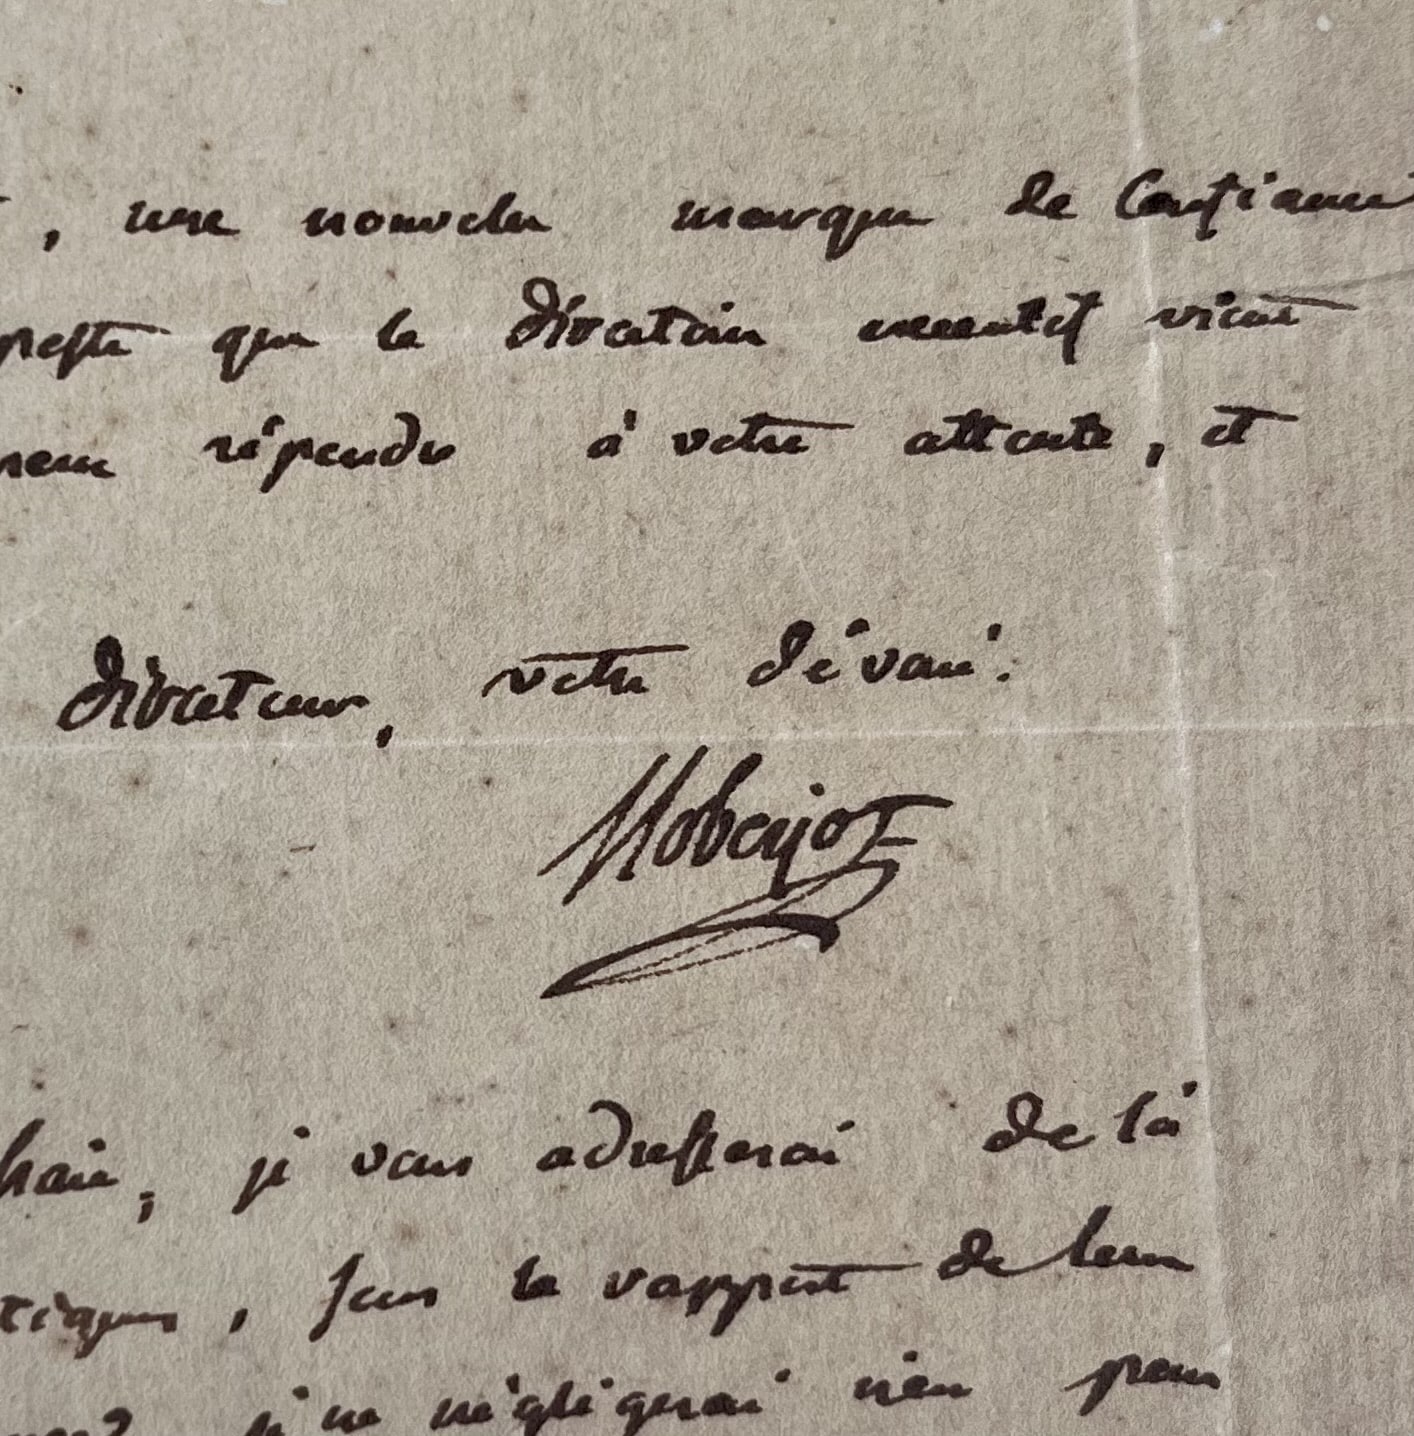 , une nouvelle marque de Confiance
reste que le directoire executif vient
pour répondre à votre attente, et
directeur, votre dévoué.
Roberjot
haie, je vous adresserai de là
tiques, sous le rapport de leur
je ne négligerai rien pour